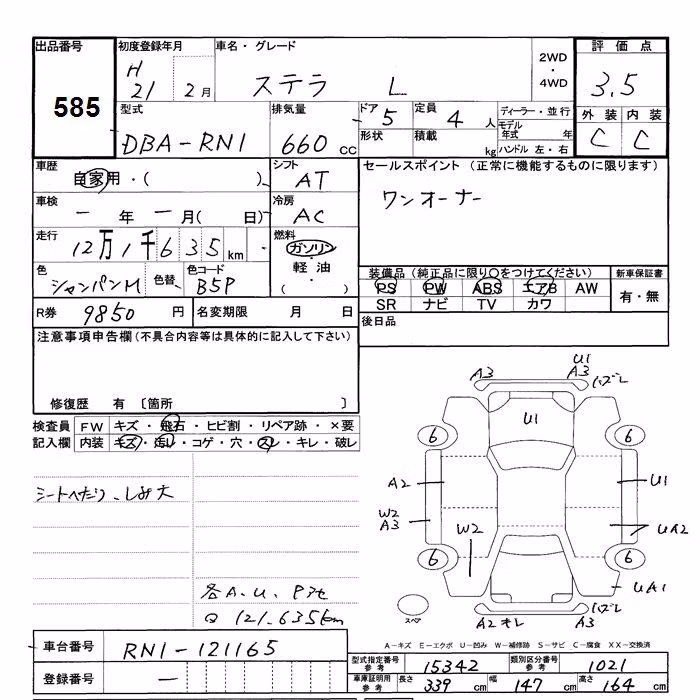 出品番号
585
初度登録年月
H 21 2月
車名・グレード
ステラ L
2WD
・
4WD
評価点
3.5
型式
DBA-RN1
排気量
660 cc
ドア
5
定員
4 人
ディーラー・並行
モデル
年式 年
形状
積載 kg
ハンドル 左・右
外装 内装
C C
車歴
自家用・( )
シフト
AT
セールスポイント (正常に機能するものに限ります)
ワンオーナー
車検
ー 年 ー 月( 日)
冷房
AC
走行
12万1千635km
燃料
ガソリン
・
軽油
( )
色
シャンパンM
色替
色コード
B5P
装備品 (純正品に限り○をつけてください)
PS PW ABS エアB AW
SR ナビ TV カワ
新車保証書
有・無
R券
9850 円
名変期限 月 日
後日品
注意事項申告欄 (不具合内容等は具体的に記入して下さい)
修復歴 有 〔箇所 〕
検査員
記入欄
FW キズ・飛石・ヒビ割・リペア跡・×要
内装 キズ・汚レ・コゲ・穴・スレ・キレ・破レ
シートへたり、しみ大
各A.U.Pアセ
Q 121,635km
A3
U1
A3
バズレ
U1
6
6
A2
U1
W2
A3
W2
UA2
6
6
UA1
スペア
A2 オレ
A3
バズレ
車台番号
RN1-121165
登録番号
ー
A-キズ E-エクボ U-凹み W-補修跡 S-サビ C-腐食 XX-交換済
型式指定番号
参考
15342
類別区分番号
参考
1021
車庫証明用
参考
長さ 339 cm 幅 147 cm 高さ 164 cm